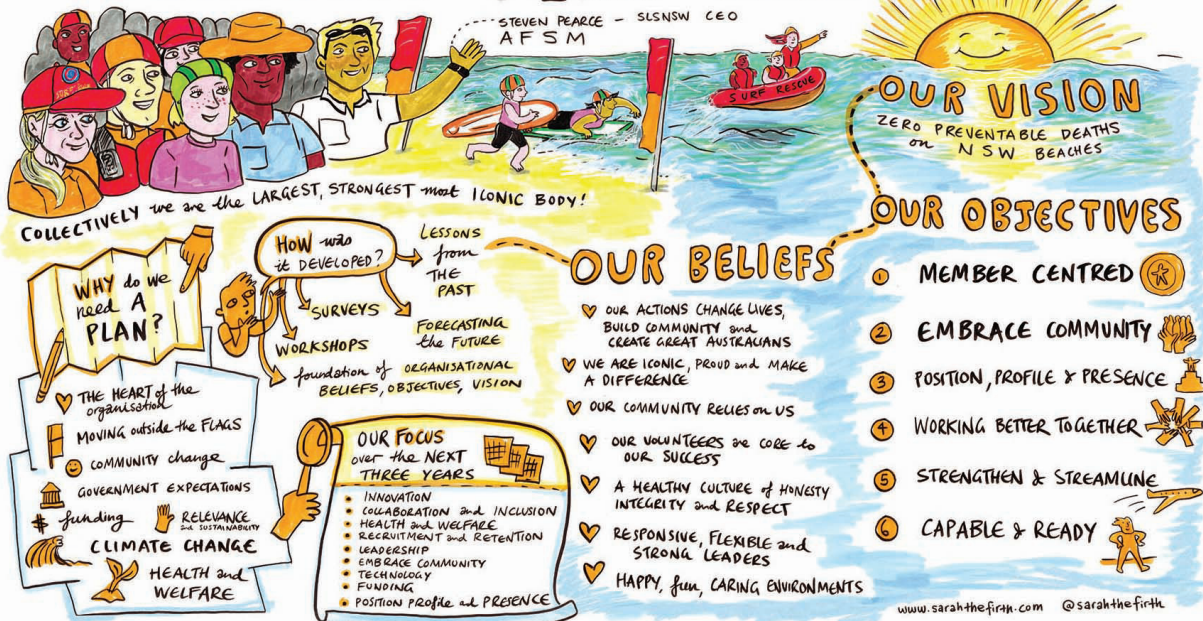 STEVEN PEARCE - SLSNSW CEO
AFSM
SURF RESCUE
COLLECTIVELY we are the LARGEST, STRONGEST most ICONIC BODY!
OUR VISION
ZERO PREVENTABLE DEATHS
on NSW BEACHES
WHY do we
need A
PLAN?
THE HEART of the
organisation
MOVING outside the FLAGS
COMMUNITY change
GOVERNMENT EXPECTATIONS
funding
RELEVANCE
and SUSTAINABILITY
CLIMATE CHANGE
HEALTH and
WELFARE
HOW was
it DEVELOPED?
LESSONS
from
THE
PAST
SURVEYS
FORECASTING
the FUTURE
WORKSHOPS
foundation of ORGANISATIONAL
BELIEFS, OBJECTIVES, VISION
OUR FOCUS
over the NEXT
THREE YEARS
INNOVATION
COLLABORATION and INCLUSION
HEALTH and WELFARE
RECRUITMENT and RETENTION
LEADERSHIP
EMBRACE COMMUNITY
TECHNOLOGY
FUNDING
POSITION PROfile and PRESENCE
OUR BELIEFS
OUR ACTIONS CHANGE LIVES,
BUILD COMMUNITY and
CREATE GREAT AUSTRALIANS
WE ARE ICONIC, PROUD and MAKE
A DIFFERENCE
OUR COMMUNITY RELIES on US
OUR VOLUNTEERS are CORE to
OUR SUCCESS
A HEALTHY CULTURE of HONESTY
INTEGRITY and RESPECT
RESPONSIVE, FLEXIBLE and
STRONG LEADERS
HAPPY, fun, CARING ENVIRONMENTS
OUR OBJECTIVES
1 MEMBER CENTRED
2 EMBRACE COMMUNITY
3 POSITION, PROFILE & PRESENCE
4 WORKING BETTER TOGETHER
5 STRENGTHEN & STREAMLINE
6 CAPABLE & READY
www.sarahthefirth.com @sarahthefirth